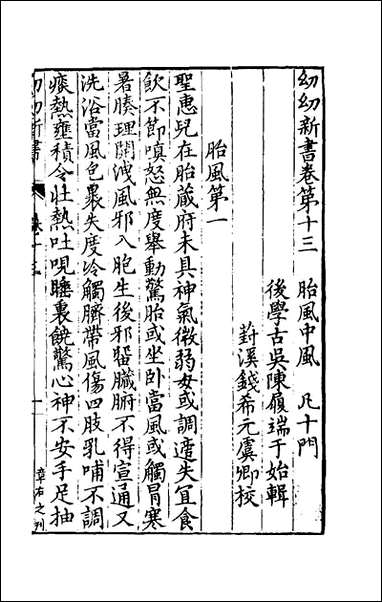 幼幼新書卷第十三　胎風中風　凡十門
後學古吳陳履端于始輯
葑溪錢希元虞卿校
胎風第一
聖惠兒在胎蔵府未具神氣微弱女或調適失宜食
飲不節嗔怒無度舉動驚胎或坐卧當風或觸冒寒
暑腠理開洩風邪入胞生後邪留臟腑不得宣通又
洗浴當風包裹失度冷觸臍帶風傷四肢乳哺不調
痰熱壅積令壯熱吐哯睡裏饒驚心神不安手足抽
幼幼新書
卷十三
一
章右之刊